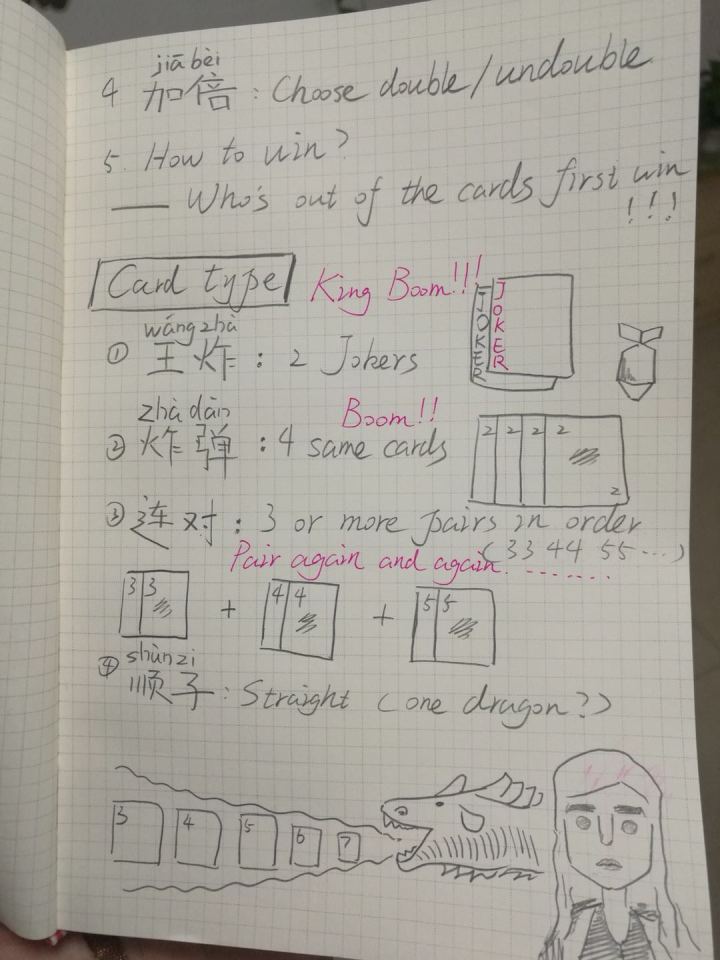 jiā bèi
4 加倍 : Choose double/undouble
5. How to win?
— Who's out of the cards first win
!!!
Card type King Boom!!!
wángzhà
① 王炸 : 2 Jokers
JOKER
JOKER
zhà dàn Boom!!
② 炸弹 : 4 same cards
2 2 2 2
2
③ 连对 : 3 or more pairs in order
(33 44 55 ...)
Pair again and again. .......
3 3 + 4 4 + 5 5
shùn zi
④ 顺子 : Straight (one dragon?)
3 4 5 6 7